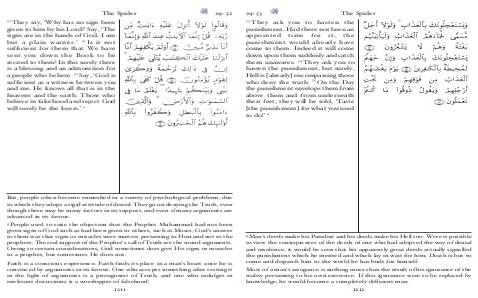 The Spider
29: 52
⁵⁰They say, 'Why has no sign been
given to him by his Lord?' Say, 'The
signs are in the hands of God. I am
but a plain warner.' ⁵¹ Is it not
sufficient for them that We have
sent you down the Book to be
recited to them? In this surely there
is a blessing and an admonition for
a people who believe. ⁵² Say, 'God is
sufficient as a witness between me and
you. He knows all that is in the
heavens and the earth. Those who
believe in falsehood and reject God
will surely be the losers.'
وَقَالُوا لَوْلَا أُنزِلَ عَلَيْهِ ءَايَٰتٌ مِّن
رَّبِّهِۦ قُلْ إِنَّمَا ٱلْءَايَٰتُ عِندَ ٱللَّهِ وَإِنَّمَآ
أَنَا۠ نَذِيرٌ مُّبِينٌ ۝ أَوَلَمْ يَكْفِهِمْ أَنَّآ
أَنزَلْنَا عَلَيْكَ ٱلْكِتَٰبَ يُتْلَىٰ عَلَيْهِمْ
إِنَّ فِى ذَٰلِكَ لَرَحْمَةً وَذِكْرَىٰ
لِقَوْمٍ يُؤْمِنُونَ ۝ قُلْ كَفَىٰ بِٱللَّهِ
بَيْنِى وَبَيْنَكُمْ شَهِيدًا يَعْلَمُ مَا فِى
ٱلسَّمَٰوَٰتِ وَٱلْأَرْضِ وَٱلَّذِينَ
ءَامَنُوا بِٱلْبَٰطِلِ وَكَفَرُوا بِٱللَّهِ
أُولَٰٓئِكَ هُمُ ٱلْخَٰسِرُونَ ۝
But, people often become enmeshed in a variety of psychological problems, due
to which they adopt a rigid attitude of denial. They go on denying the Truth, even
though there may be many factors in its support, and even if many arguments are
advanced in its favour.
People used to raise the objection that the Prophet Muhammad had not been
given signs of God such as had been given to others, such as Moses. God's answer
to them was that signs or miracles were matters pertaining to Him and not to the
prophets. The real support of the Prophet's call of Truth are the sound arguments.
Owing to certain considerations, God sometimes does give His signs or miracles
to a prophet, but sometimes He does not.
Faith is a conscious experience. Faith finds its place in a man's heart once he is
convinced by arguments in its favour. One who accepts something after testing it
in the light of arguments is a protagonist of Truth, and one who indulges in
irrelevant discussions is a worshipper of falsehood.
1211
29: 53
The Spider
⁵³They ask you to hasten the
punishment. Had there not been an
appointed time for it, the
punishment would already have
come to them. Indeed it will come
down upon them suddenly and catch
them unawares. ⁵⁴They ask you to
hasten the punishment, but surely,
Hell is [already] encompassing those
who deny the truth. ⁵⁵ On the Day
the punishment envelops them from
above them and from underneath
their feet, they will be told, 'Taste
[the punishment] for what you used
to do!'
وَيَسْتَعْجِلُونَكَ بِٱلْعَذَابِ وَلَوْلَآ أَجَلٌ
مُّسَمًّى لَّجَآءَهُمُ ٱلْعَذَابُ وَلَيَأْتِيَنَّهُم
بَغْتَةً وَهُمْ لَا يَشْعُرُونَ ۝
يَسْتَعْجِلُونَكَ بِٱلْعَذَابِ وَإِنَّ جَهَنَّمَ
لَمُحِيطَةٌۢ بِٱلْكَٰفِرِينَ ۝ يَوْمَ يَغْشَىٰهُمُ
ٱلْعَذَابُ مِن فَوْقِهِمْ وَمِن تَحْتِ
أَرْجُلِهِمْ وَيَقُولُ ذُوقُوا مَا كُنتُمْ
تَعْمَلُونَ ۝
Man's deeds make his Paradise and his deeds make his Hell too. Were it possible
to view the consequences of the deeds of one who had adopted the way of denial
and vendetta, it would be seen that his apparently great deeds actually signalled
the punishment which he merited and which lay in wait for him. Death is but to
come and dispatch him to the world he has built for himself.
Most of a man's arrogance is nothing more than the result of his ignorance of the
reality pertaining to his own existence. If this ignorance were to be replaced by
knowledge, he would become a completely different man.
1212